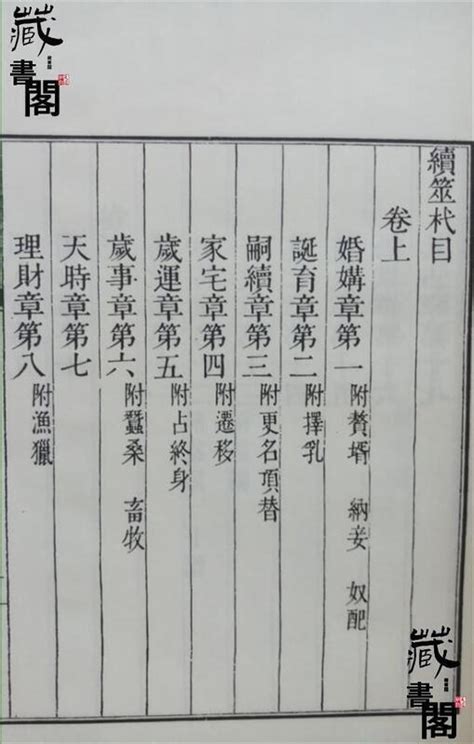 藏書閣
續筮杙目
卷上
婚媾章第一 附贅壻 納妾 奴配
誕育章第二 附擇乳
嗣續章第三 附更名頂替
家宅章第四 附遷移
歲運章第五 附占終身
歲事章第六 附蠶桑 畜牧
天時章第七
理財章第八 附漁獵
藏書閣